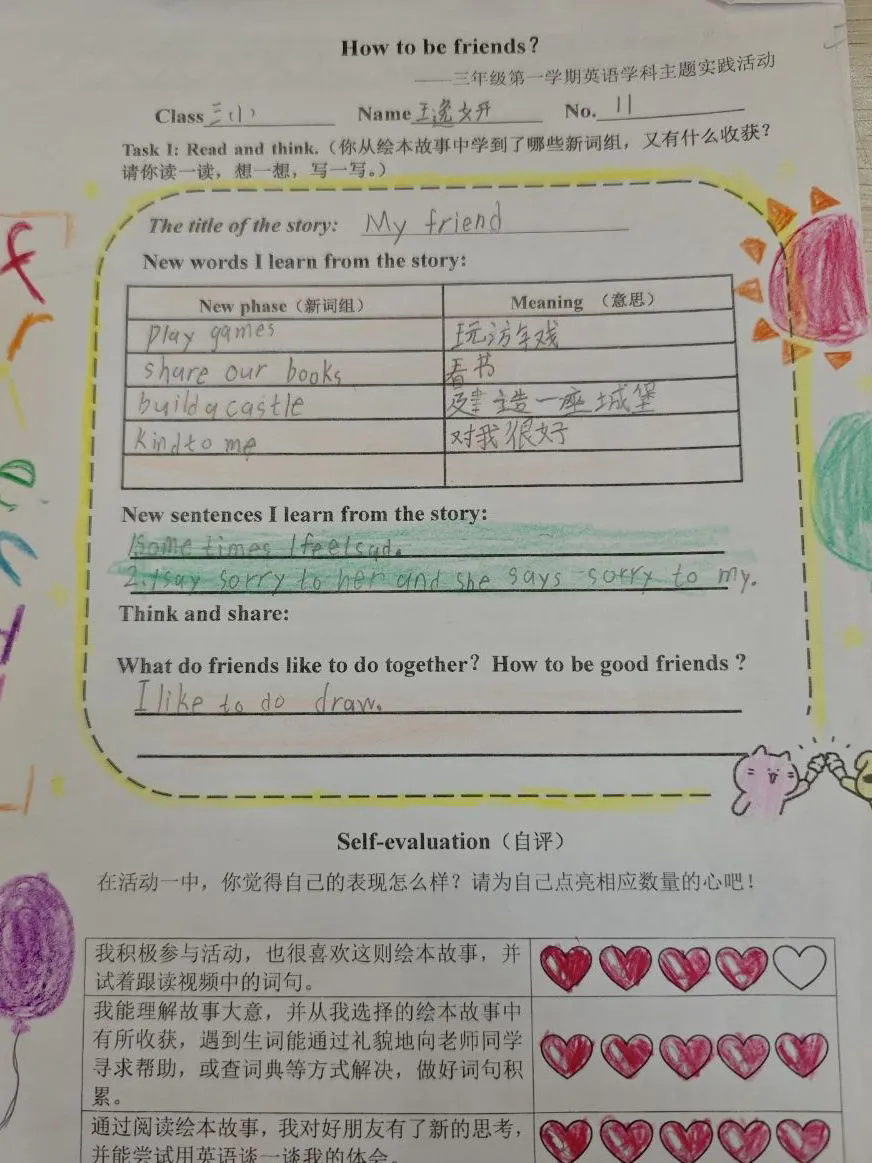 How to be friends?
——三年级第一学期英语学科主题实践活动
Class 三(1) Name 王逸妍 No. 11
Task I: Read and think.（你从绘本故事中学到了哪些新词组，又有什么收获？
请你读一读，想一想，写一写。）
The title of the story: My friend
New words I learn from the story:
New phase（新词组） Meaning （意思）
play games 玩游戏
share our books 看书
build a castle 建造一座城堡
kind to me 对我很好
New sentences I learn from the story:
1Some times I feel sad.
2.I say sorry to her and she says sorry to my.
Think and share:
What do friends like to do together? How to be good friends ?
I like to do draw.
Self-evaluation（自评）
在活动一中，你觉得自己的表现怎么样？请为自己点亮相应数量的心吧！
我积极参与活动，也很喜欢这则绘本故事，并
试着跟读视频中的词句。
我能理解故事大意，并从我选择的绘本故事中
有所收获，遇到生词能通过礼貌地向老师同学
寻求帮助，或查词典等方式解决，做好词句积
累。
通过阅读绘本故事，我对好朋友有了新的思考，
并能尝试用英语谈一谈我的体会。